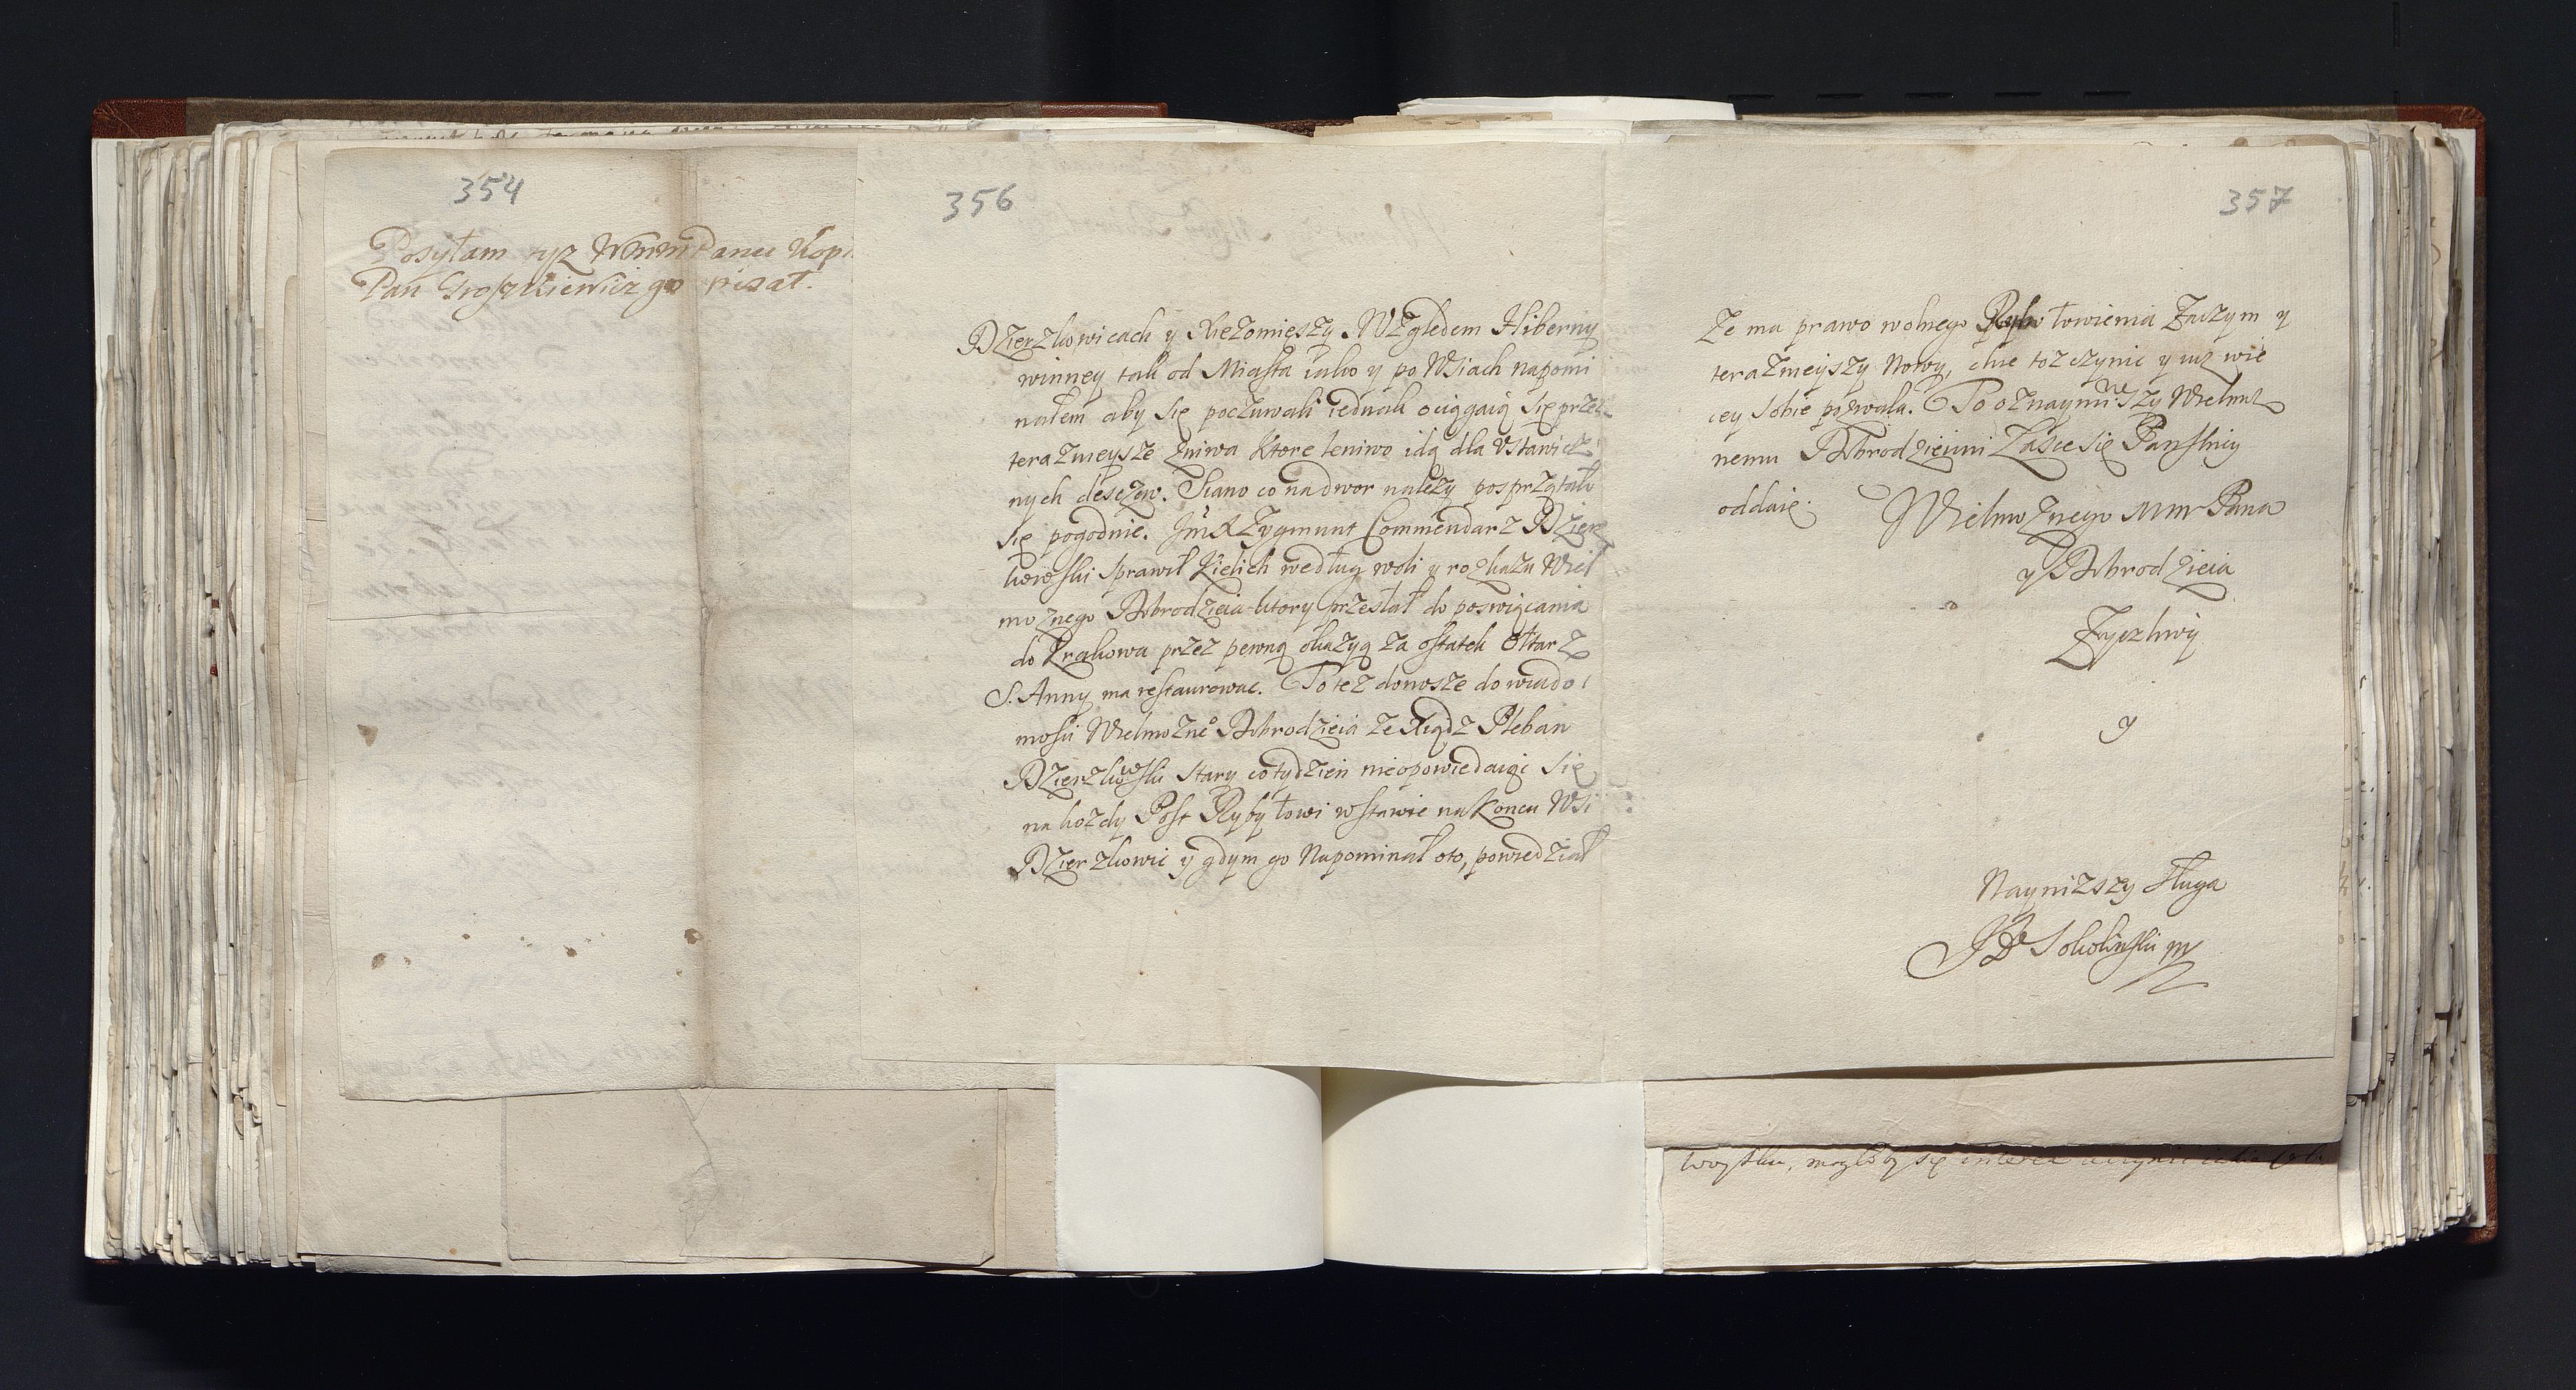 354
Posyłam tyz WMM Panu Kopi
Pan Groszkiewicz go pisał.
356
Dzierzkowicach y Xięzomięszy Względem Hiberny
winney tak od Miasta iako y po Wsiach napomi
nałem aby się poczuwali iednak ociągaią się przez
terazmeysze zniwa ktore leniwo idą dla Ustawicz
nych desczow. Siano co na dwor nalezy posprzątało
się pogodnie. Jmć X Zygmunt Commendarz Dzierz
kowski sprawił Kielich według woli y rozkazu Wiel
moznego Dobrodzieia ktory przesłał do poswiącania
do Krakowa przez pewną okazyą za ostatek Ołtarz
S. Anny ma restaurowac. To tez donosze do wiado
mosci Wielmozne° Dobrodzieia ze Xiądz Pleban
Dzierzkowski stary co tydzien nieopowiedaiąc się
na kozdy Post Ryby łowi w stawie na Koncu Wsi
Dzierzkowic y gdym go Napominał oto, powiedział
357
Ze ma prawo wolnego Rybo łowienia Zaczym y
terazmeyszy Nowy, chce toz czynic y usz wie
cey sobie pozwala. To oznaymuiwszy Wielmoz
nemu Dobrodzieiowi Łasce się Panskiey
oddaię.
Wielmoznego MM Pana
y Dobrodzieia
Zyczliwy
y
Naynizszy Sługa
JP Sokolinski mp
woysku, mogłoby się